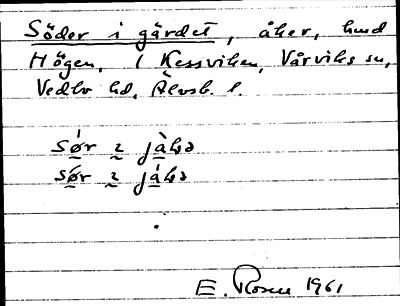 Söder i gärdet, åker, hmd
Högen, 1 Kessviken, Vårviks sn,
Vedbo hd, Älvsb. l.
sør 2 jàḷṣə
sør 2 jáḷṣə
E. Rosen 1961